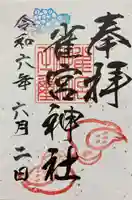 奉拝
雀宮神社
令和六年六月二日